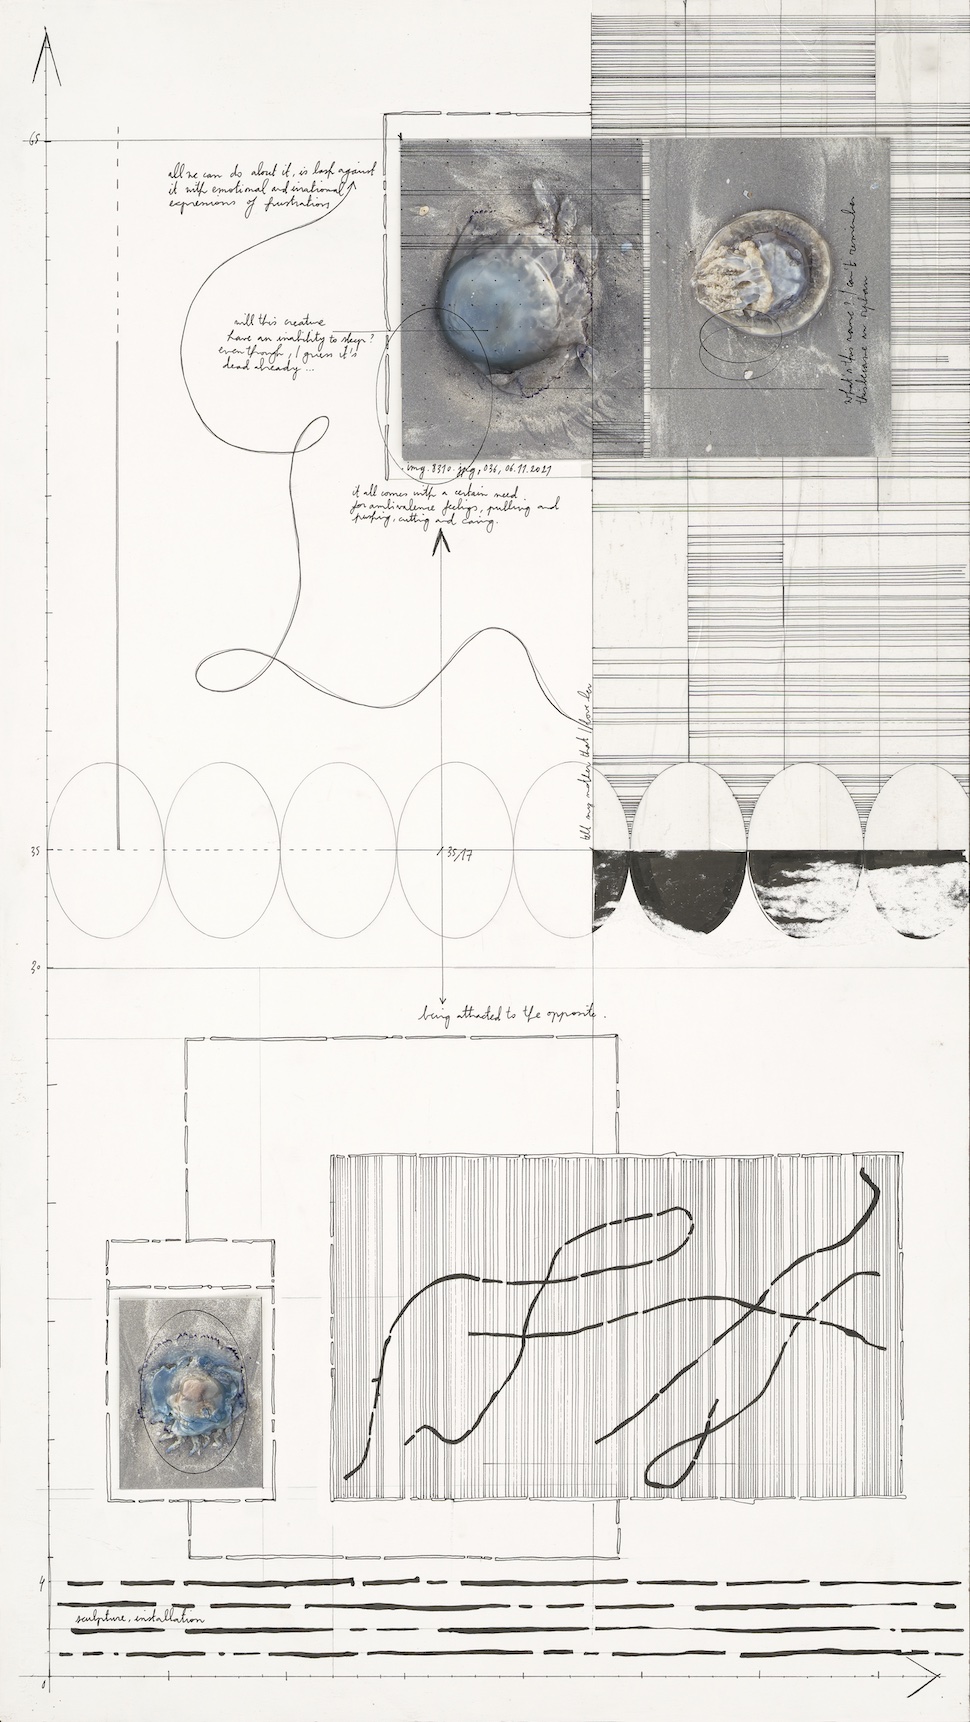 65
all we can do about it, is lash against
it with emotional and irrational
expressions of frustrations
will this creature
have an inability to sleep?
even though, I guess it's
dead already ...
what's this name? I can't remember
this became an
img. 8310. jpg, 036, 06.11.2021
it all comes with a certain need
for ambivalence feelings, pulling and
pushing, cutting and caring.
tell my mother that I love her
35
35/17
30
being attracted to the opposite.
4
sculpture, installation
0